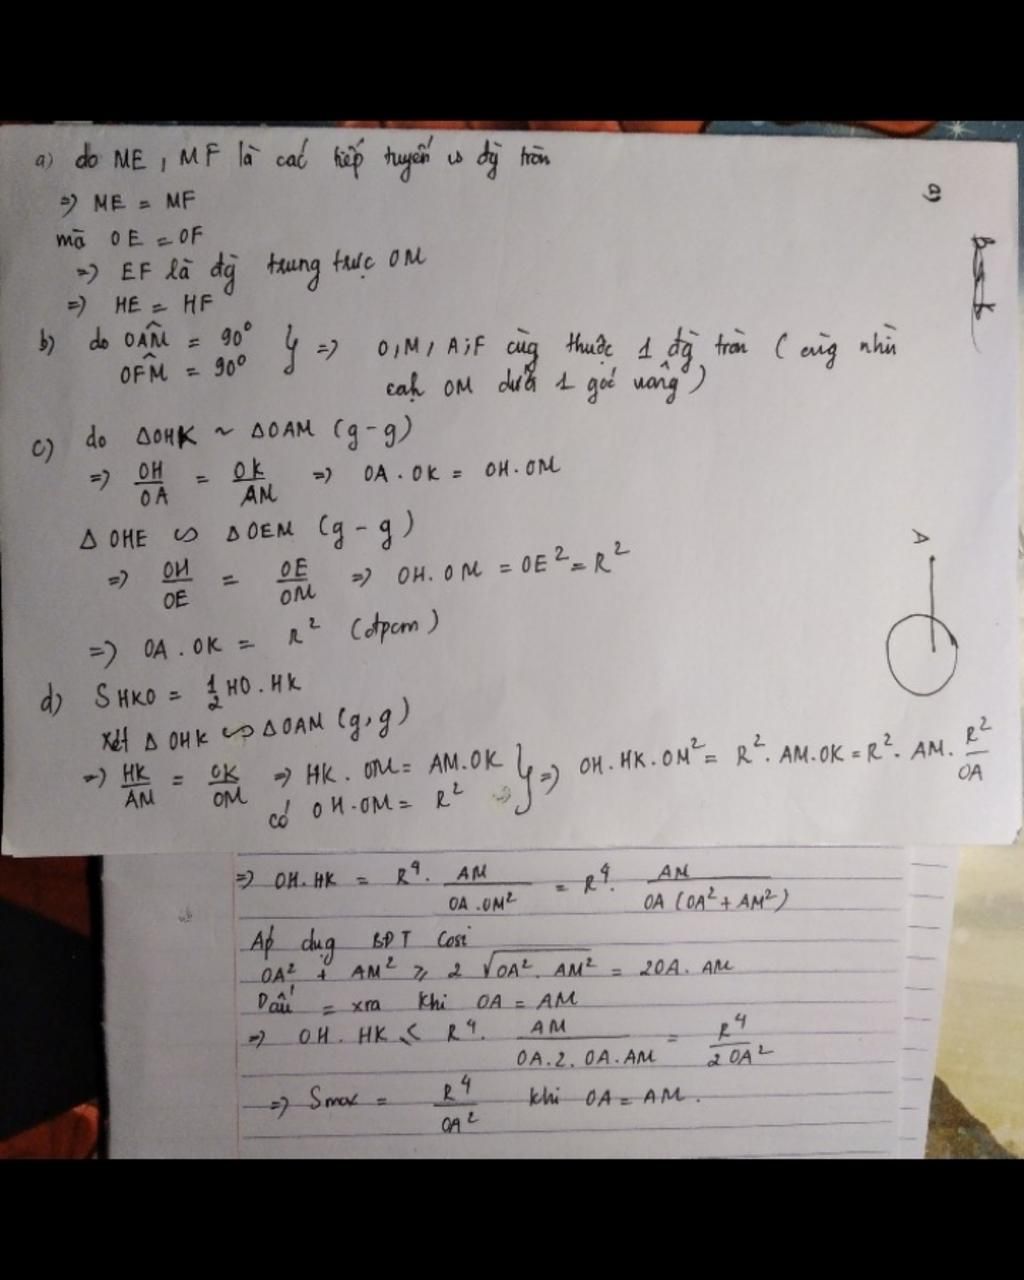 a) do ME, MF là các tiếp tuyến vs đg tròn
=> ME = MF
mà OE = OF
=> EF là đg trung trực OM
=> HE = HF
b) do OÂM = 90° } => O, M, A; F cùng thuộc 1 đg tròn ( cùng nhìn
OF̂M = 90° cạh OM dưới 1 góc vuông )
c) do ΔOHK ~ ΔOAM (g-g)
=> OH/OA = OK/AM => OA . OK = OH . OM
Δ OHE ∽ Δ OEM (g-g)
=> OH/OE = OE/OM => OH . OM = OE² = R²
=> OA . OK = R² (đpcm)
d) S HKO = 1/2 HO . HK
xét Δ OHK ∽ Δ OAM (g,g)
=> HK/AM = OK/OM => HK . OM = AM . OK } => OH . HK . OM² = R² . AM . OK = R² . AM . R²/OA
có OH . OM = R²
=> OH . HK = R⁴ . AM/OA . OM² = R⁴ . AM/OA (OA² + AM²)
Áp dụg BĐT Cosi
OA² + AM² ≥ 2 √OA² . AM² = 2OA . AM
Dấu = xra khi OA = AM
=> OH . HK ≤ R⁴ . AM/OA . 2 . OA . AM = R⁴/2OA²
=> Smax = R⁴/OA² khi OA = AM .
a)
A